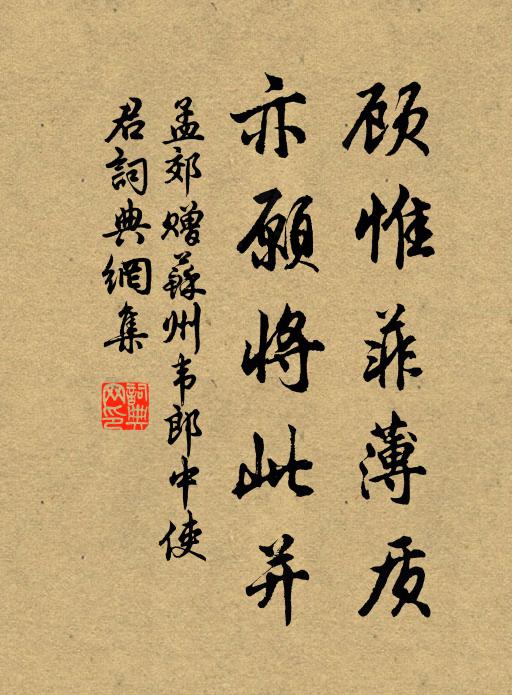 顾惟菲薄质
亦愿将此并
孟郊赠蘇州韦郎中使
君詞典網集
詞典
网印